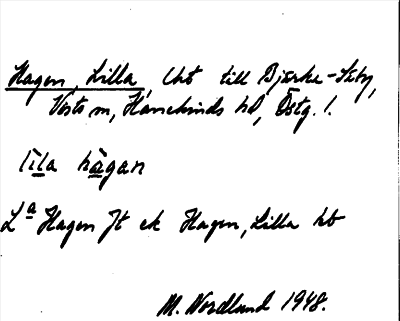 Hagen, Lilla, lht till Bjärka-Säby,
Vists sn, Hanekinds hd, Östg. l.
lìla hàgan
La Hagen Jt ek Hagen, Lilla hb
M. Nordland 1948.